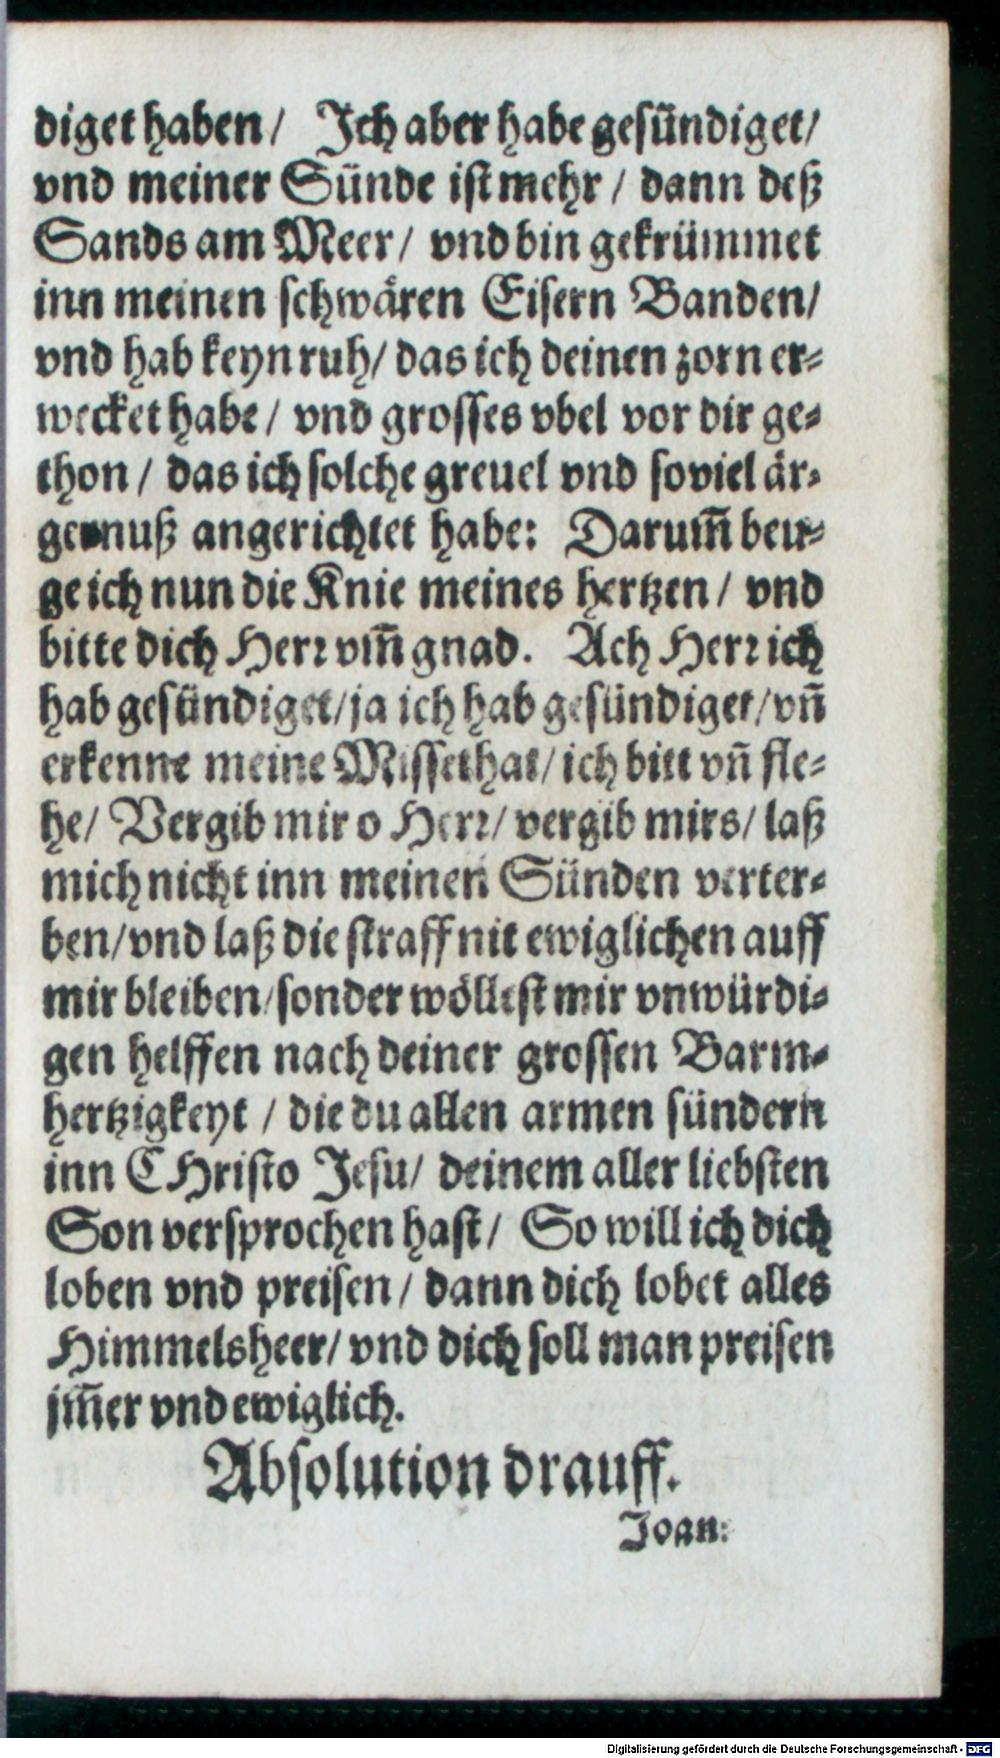 diget haben / Ich aber habe gesündiget /
vnd meiner Sünde ist mehr / dann deß
Sands am Meer / vnd bin gekrümmet
inn meinen schwären Eisern Banden /
vnd hab keyn ruh / das ich deinen zorn er-
wecket habe / vnd grosses vbel vor dir ge-
thon / das ich solche greuel vnd soviel är-
gernuß angerichtet habe: Darum̄ beu-
ge ich nun die Knie meines hertzen / vnd
bitte dich Herr vm̄ gnad. Ach Herr ich
hab gesündiget / ja ich hab gesündiget / vn̄
erkenne meine Missethat / ich bitt vn̄ fle-
he / Vergib mir o Herr / vergib mirs / laß
mich nicht inn meinen Sünden verter-
ben / vnd laß die straff nit ewiglichen auff
mir bleiben / sonder wöllest mir vnwürdi-
gen helffen nach deiner grossen Barm-
hertzigkeyt / die du allen armen sündern
inn CHristo Jesu / deinem aller liebsten
Son versprochen hast / So will ich dich
loben vnd preisen / dann dich lobet alles
Himmelsheer / vnd dich soll man preisen
jm̄er vnd ewiglich.
Absolution drauff.
Joan:
Digitalisierung gefördert durch die Deutsche Forschungsgemeinschaft - DFG